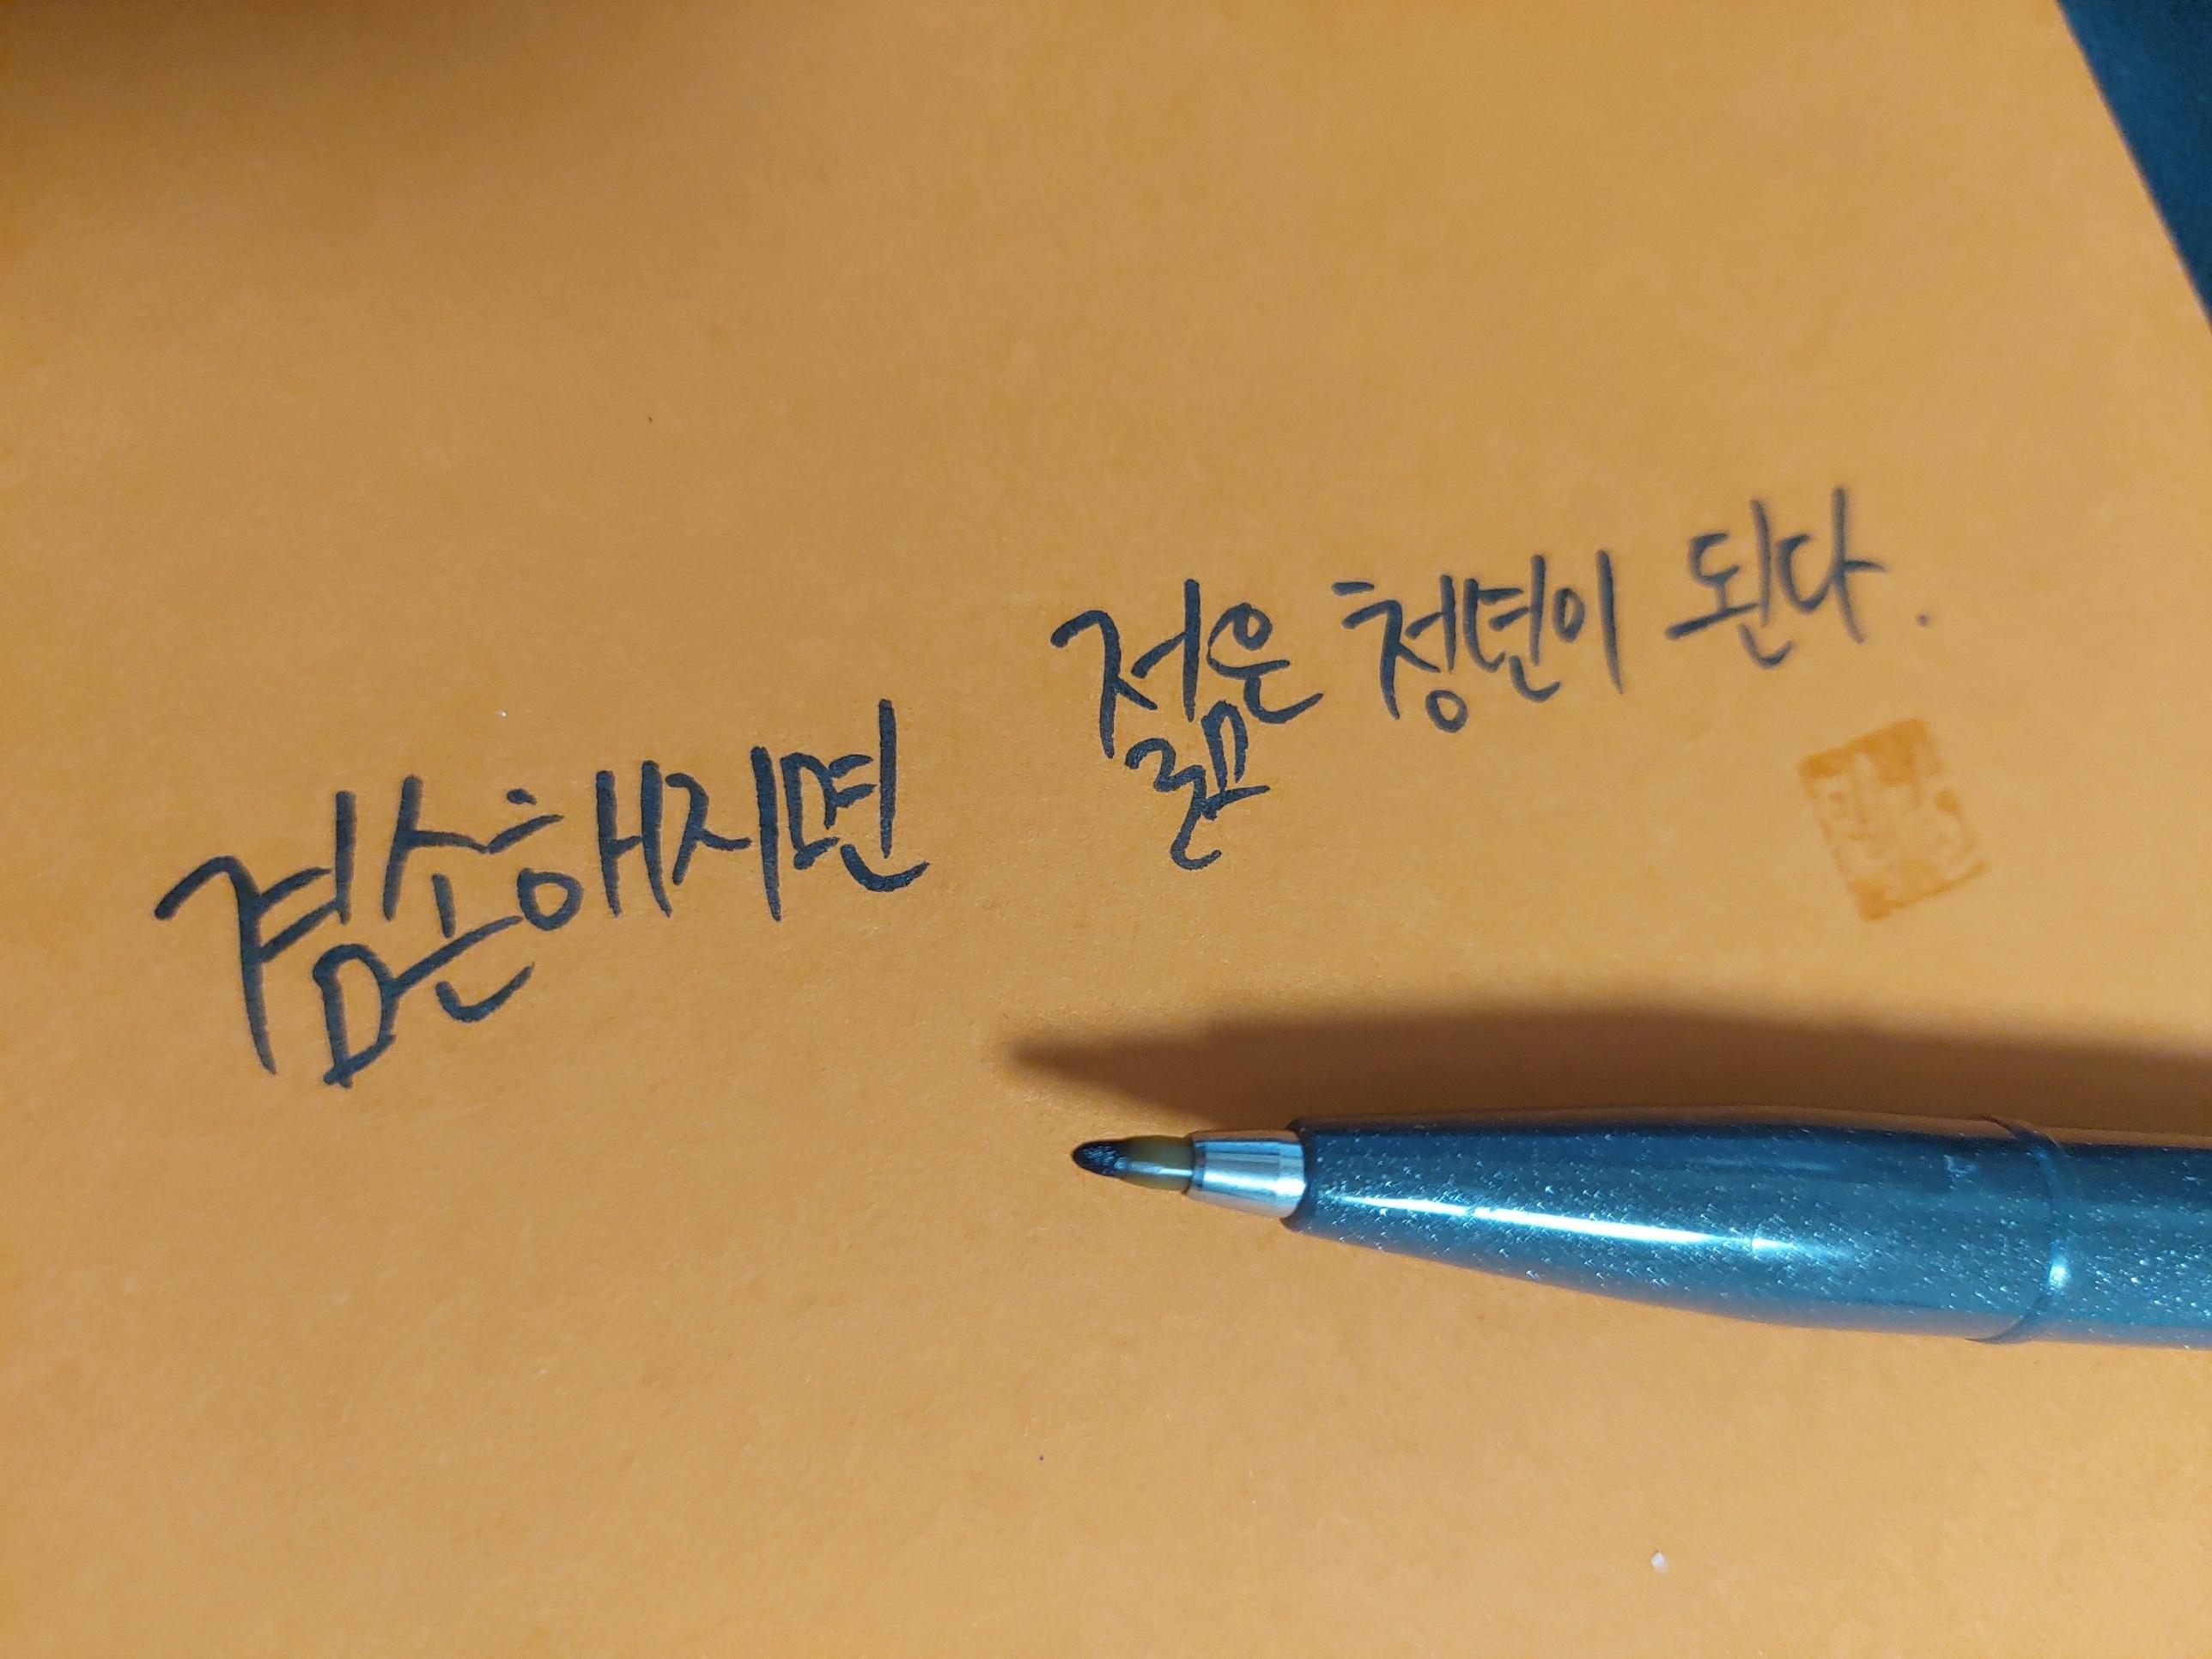 겸손해지면 젊은 청년이 된다.